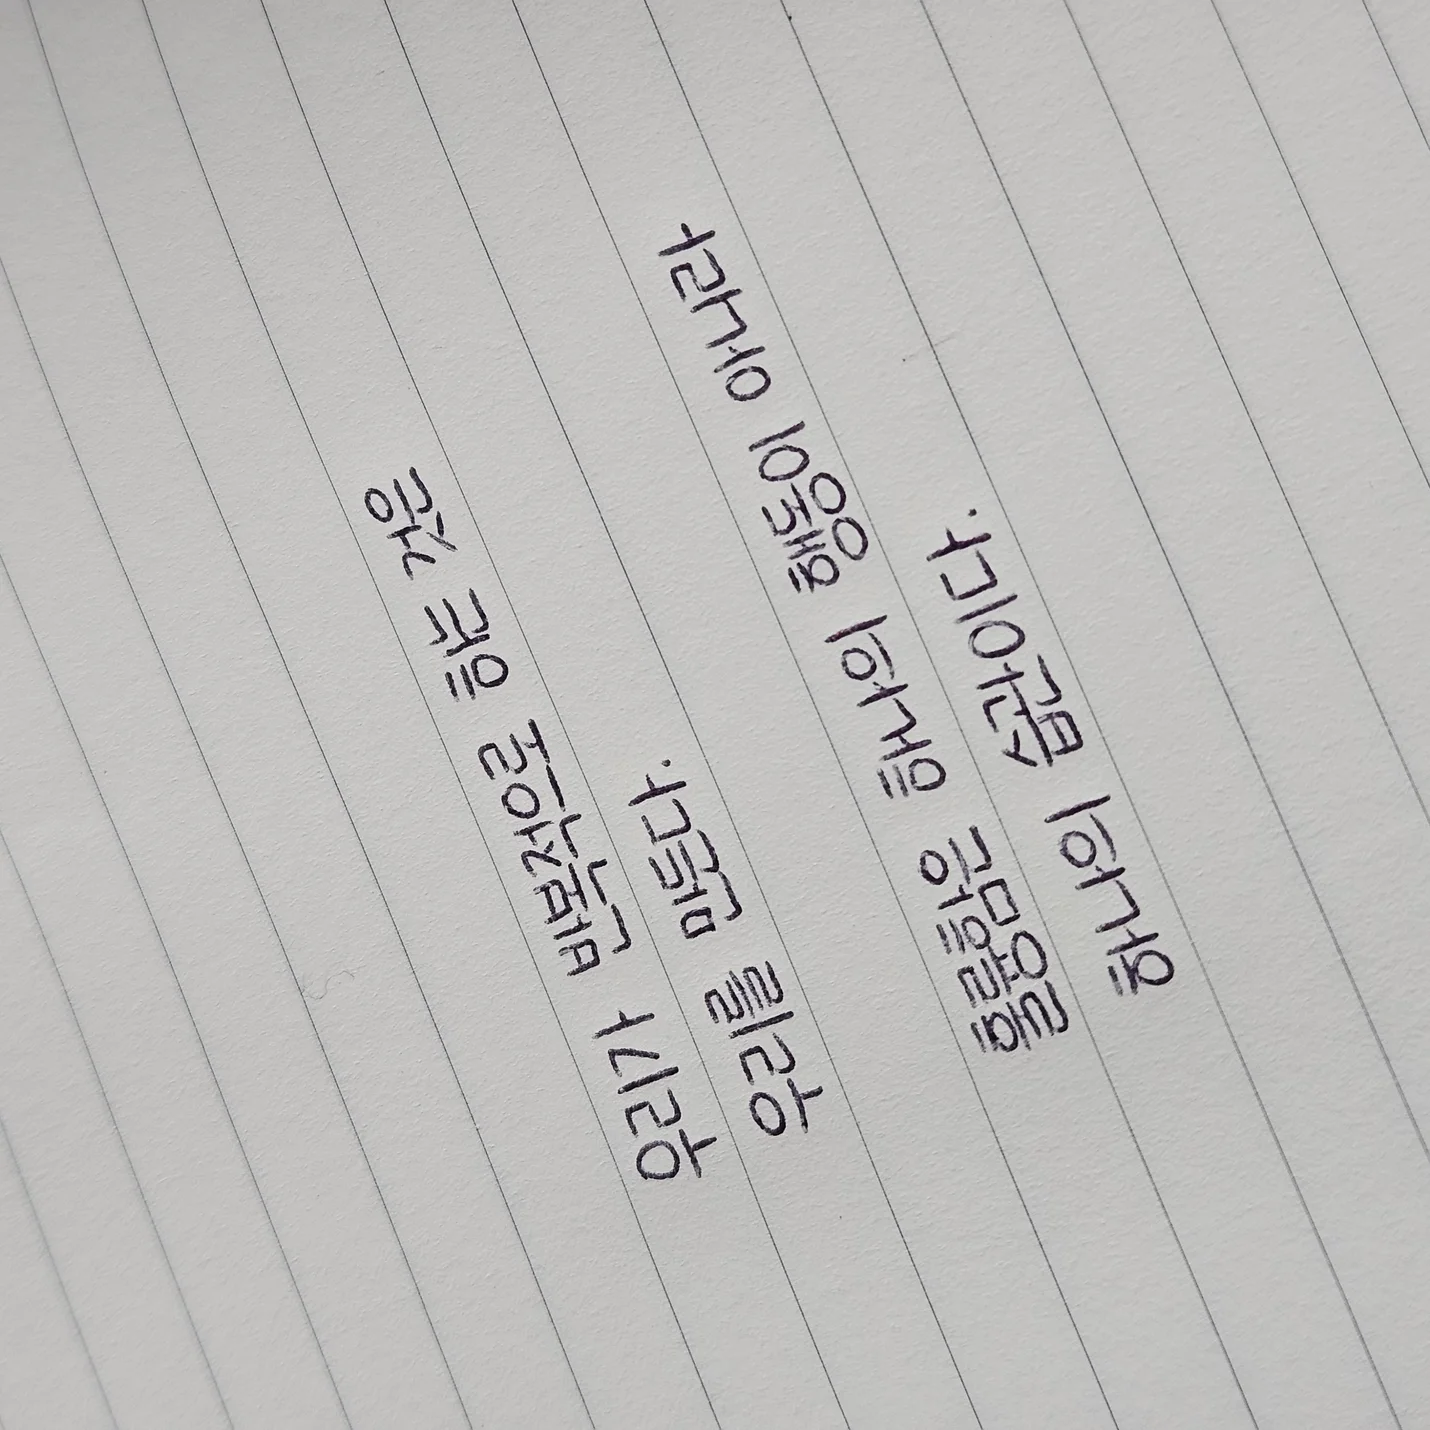 우리가 반복적으로 하는 것은
우리를 만든다.
훌륭함은 하나의 행동이 아니라
하나의 습관이다.